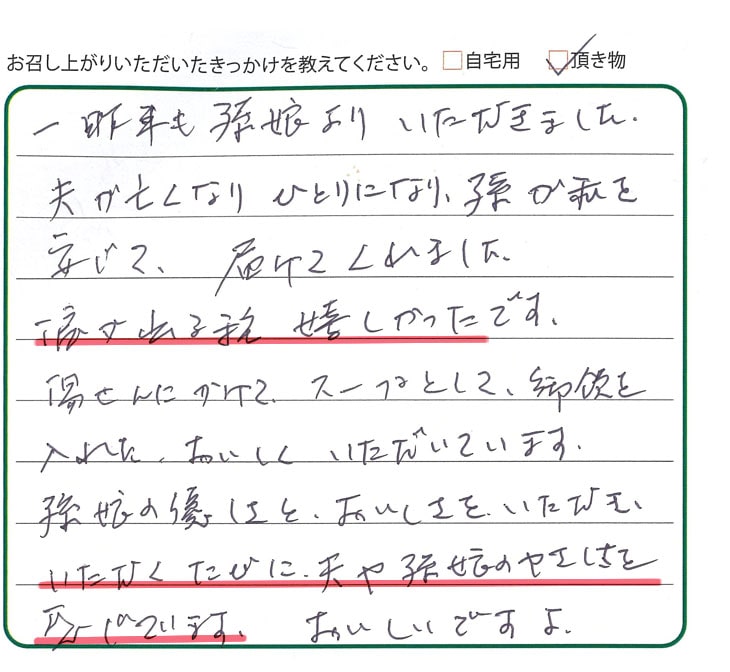 お召し上がりいただいたきっかけを教えてください。 自宅用 頂き物
一昨年も孫娘より いただきました.
夫が亡くなり ひとりになり、孫が私を
案じて、 届けてくれました.
涙が出る程 嬉しかったです.
湯せんにかけて、スープとして、御飯を
入れたり、おいしく いただいています.
孫娘の優しさと、おいしさを、いただき、
いただくたびに、夫や孫娘のやさしさを
感じています. おいしいですよ.